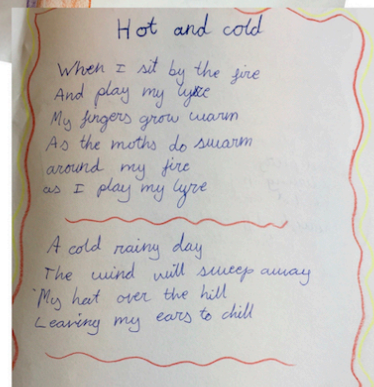 Hot and cold
When I sit by the fire
And play my lyre
My fingers grow warm
As the moths do swarm
around my fire
as I play my lyre
A cold rainy day
The wind will sweep away
My hat over the hill
Leaving my ears to chill